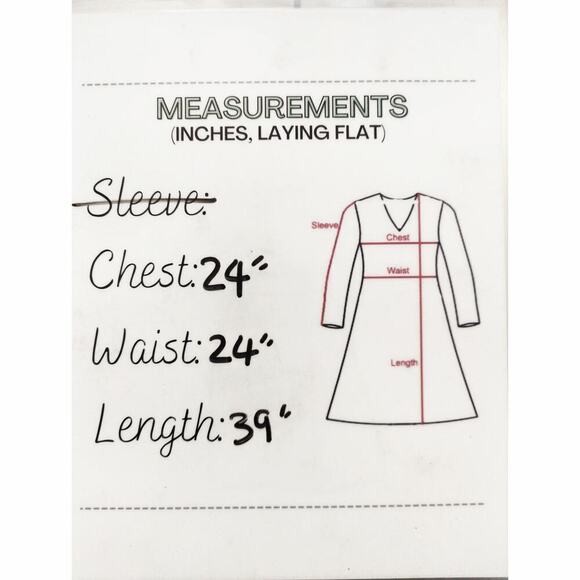 MEASUREMENTS
(INCHES, LAYING FLAT)
Sleeve:
Chest: 24"
Waist: 24"
Length: 39"
Sleeve
Chest
Waist
Length